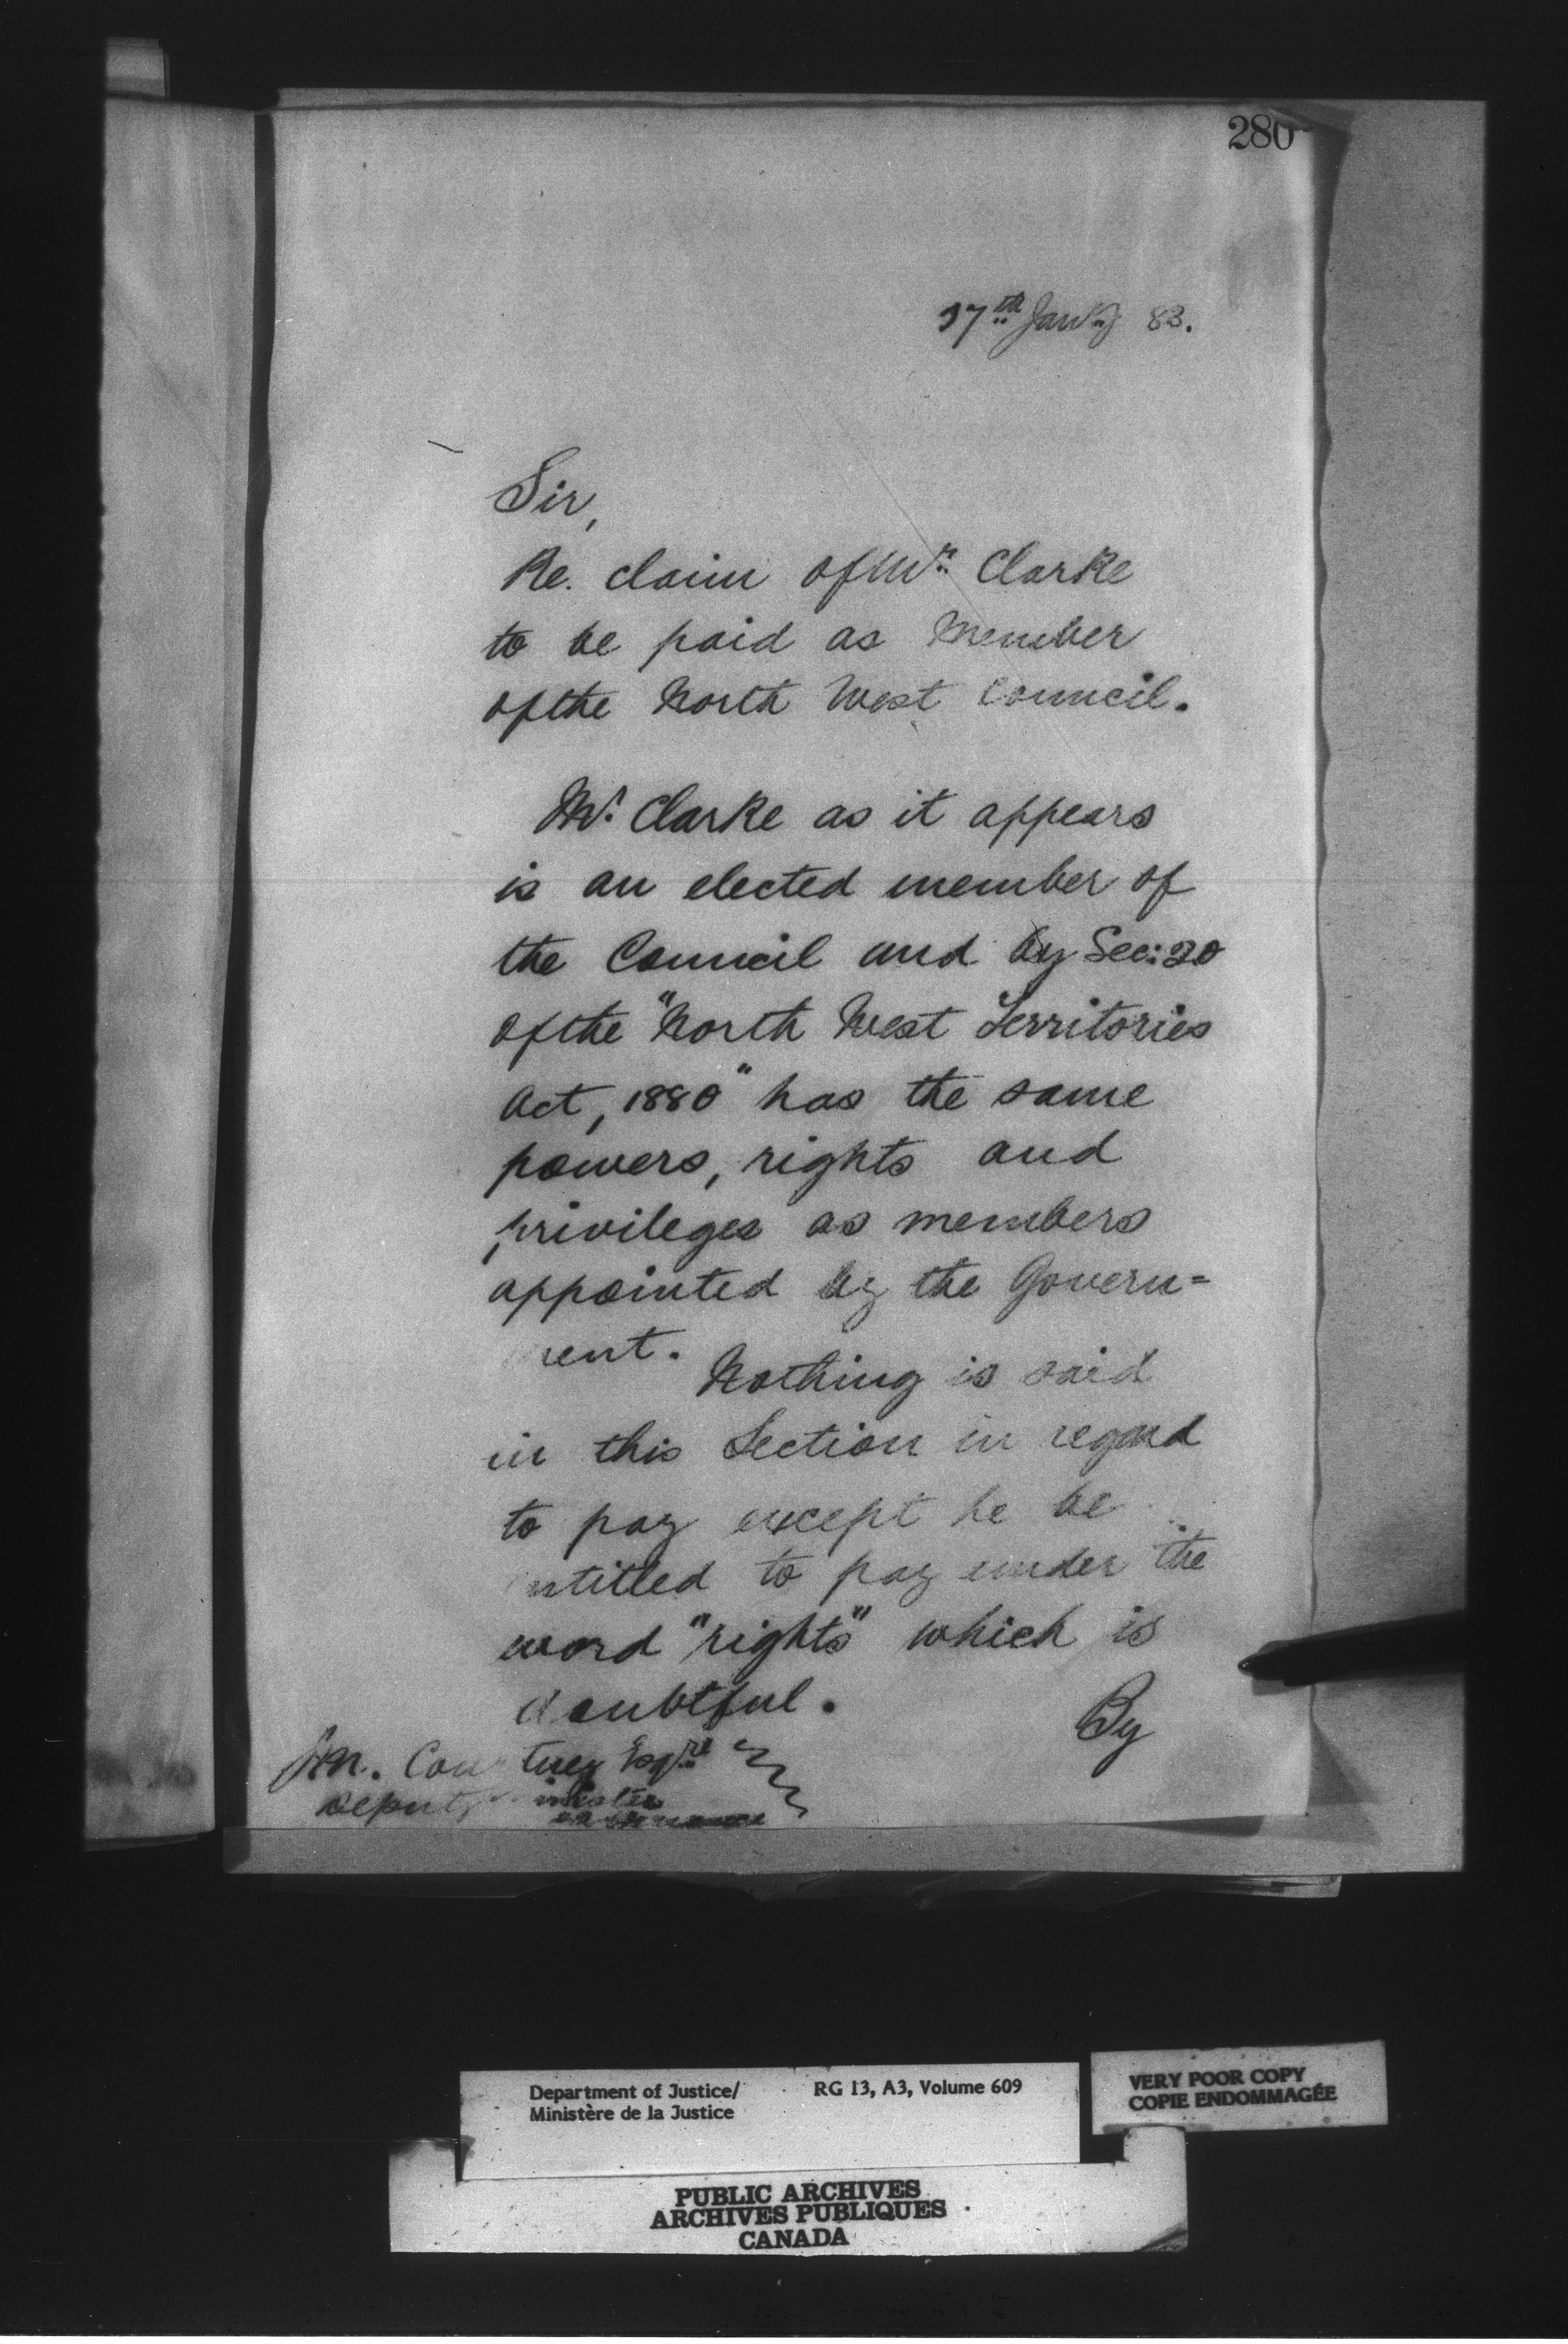 280
17th Jan'y 83.
Sir,
Re. claim of Mr. Clarke
to be paid as Member
of the North West Council.
Mr. Clarke as it appears
is an elected member of
the Council and by Sec: 20
of the "North West Territories
Act, 1880" has the same
powers, rights and
privileges as members
appointed by the Govern=
ment.
Nothing is said
in this Section in regard
to pay except he be
entitled to pay under the
word "rights" which is
doubtful.
By
J.M. Courtney Esqre
Deputy Minister
of Finance
Department of Justice/ RG 13, A3, Volume 609
Ministère de la Justice
VERY POOR COPY
COPIE ENDOMMAGÉE
PUBLIC ARCHIVES
ARCHIVES PUBLIQUES
CANADA